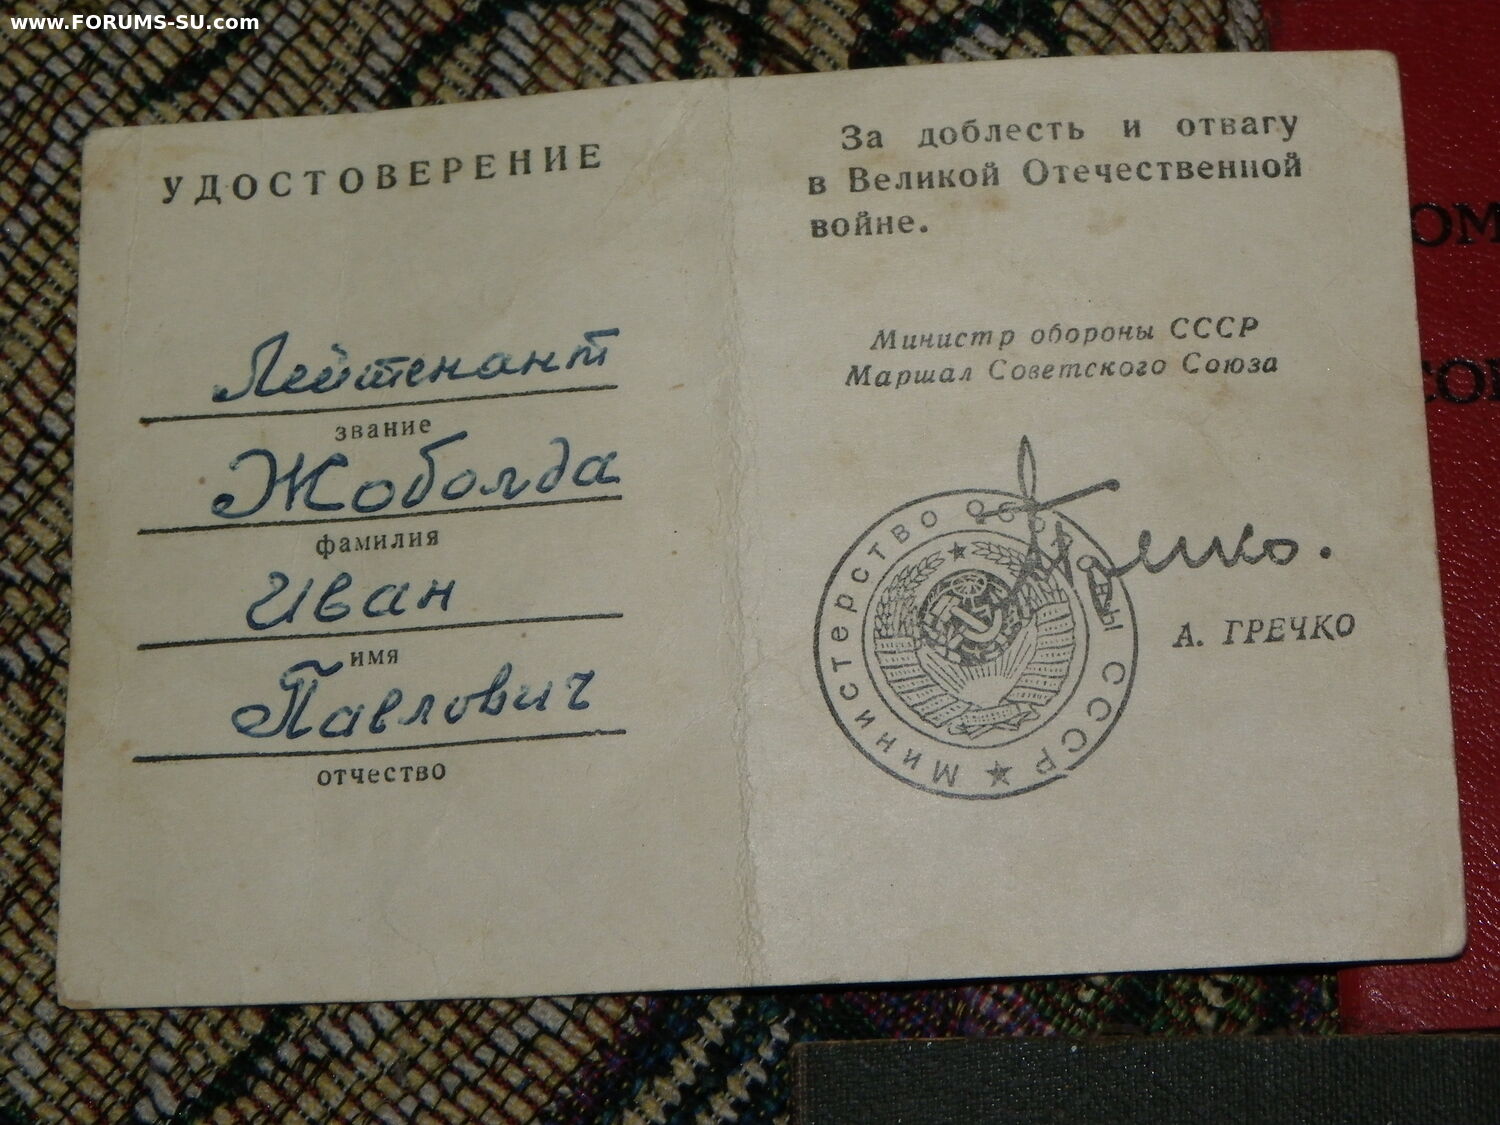 www.FORUMS-SU.com
УДОСТОВЕРЕНИЕ
Лейтенант
звание
Жоболда
фамилия
Иван
имя
Павлович
отчество
За доблесть и отвагу
в Великой Отечественной
войне.
Министр обороны СССР
Маршал Советского Союза
Гречко.
А. ГРЕЧКО
МИНИСТЕРСТВО ОБОРОНЫ СССР
ОМ
СО